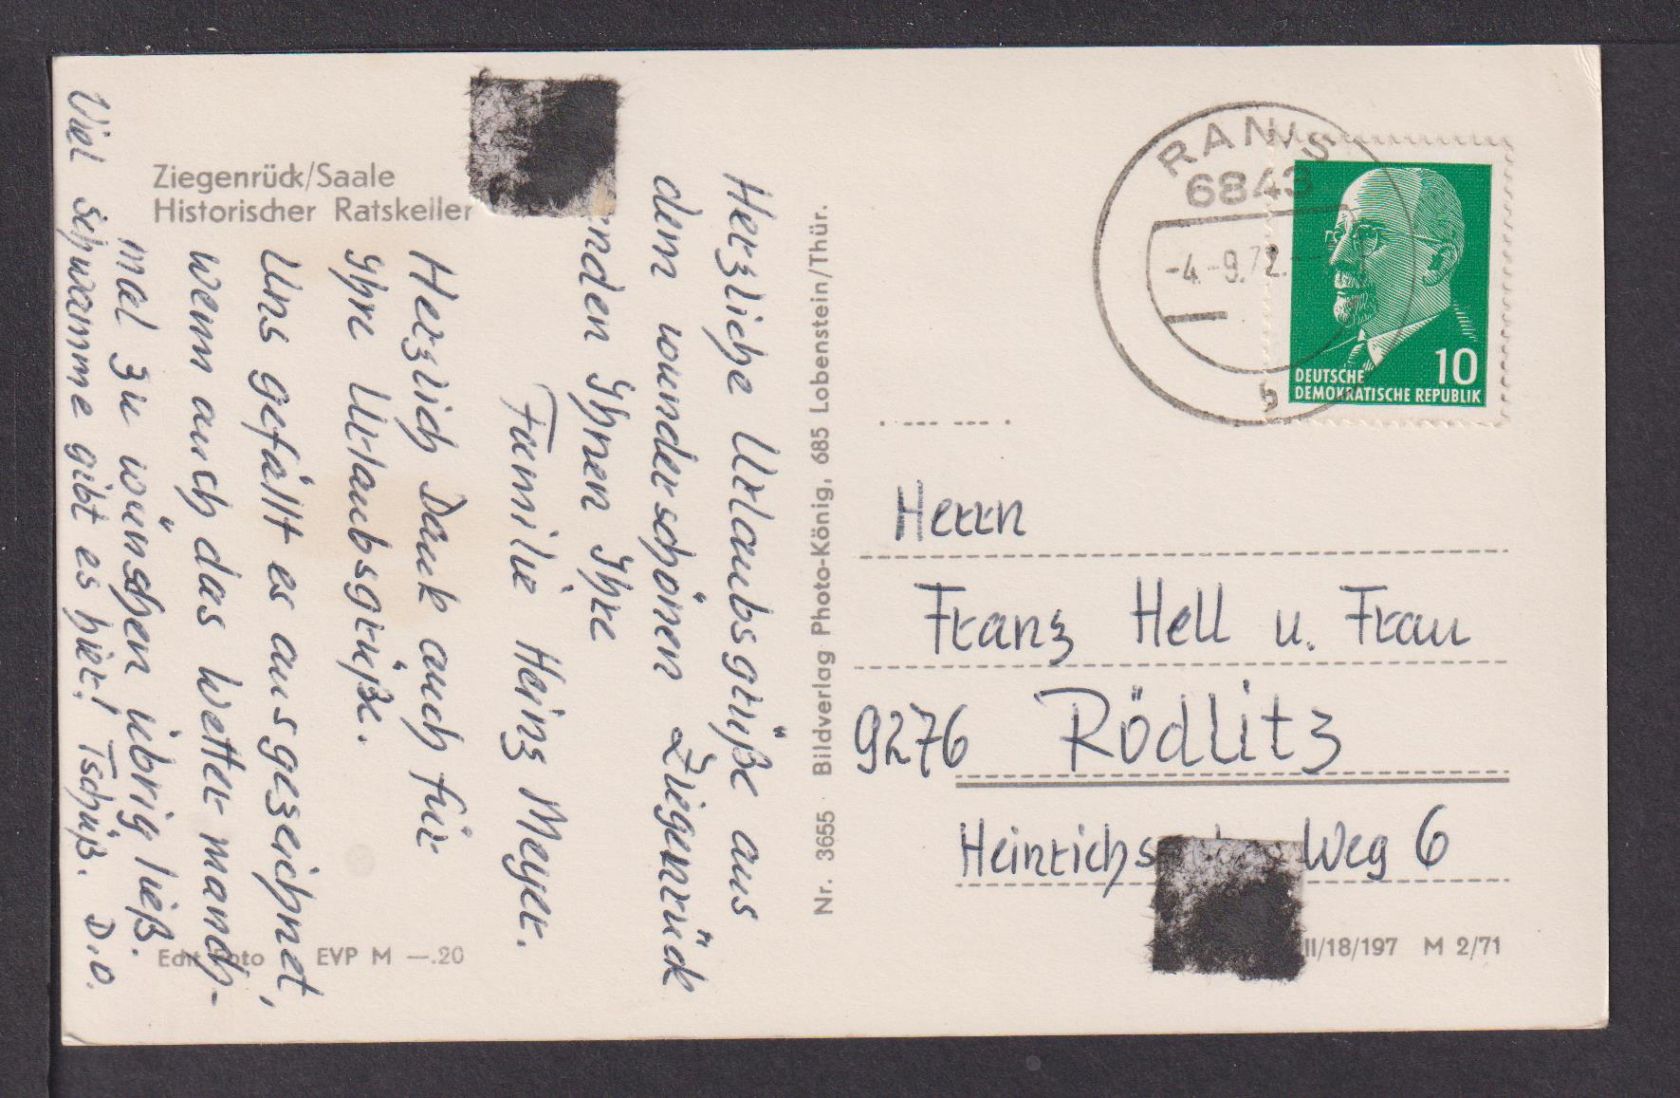 Ziegenrück/Saale
Historischer Ratskeller
Herzliche Urlaubsgrüße aus
dem wunderschönen Ziegenrück
Ihnen Ihre
Familie Heinz Meyer.
Herzlich Dank auch für
Ihre Urlaubsgrüße.
Uns gefällt es ausgezeichnet,
wenn auch das Wetter manch-
mal zu wünschen übrig ließ.
Viel Schwamme gibt es hier! Tschüß. D.O.
Edit Foto EVP M —.20
Nr. 3655 Bildverlag Photo-König, 685 Lobenstein/Thür.
RANIS
6843
-4.-9.72.
b
10
DEUTSCHE
DEMOKRATISCHE REPUBLIK
Herrn
Franz Hell u. Frau
9276 Rödlitz
Weg 6
II/18/197 M 2/71